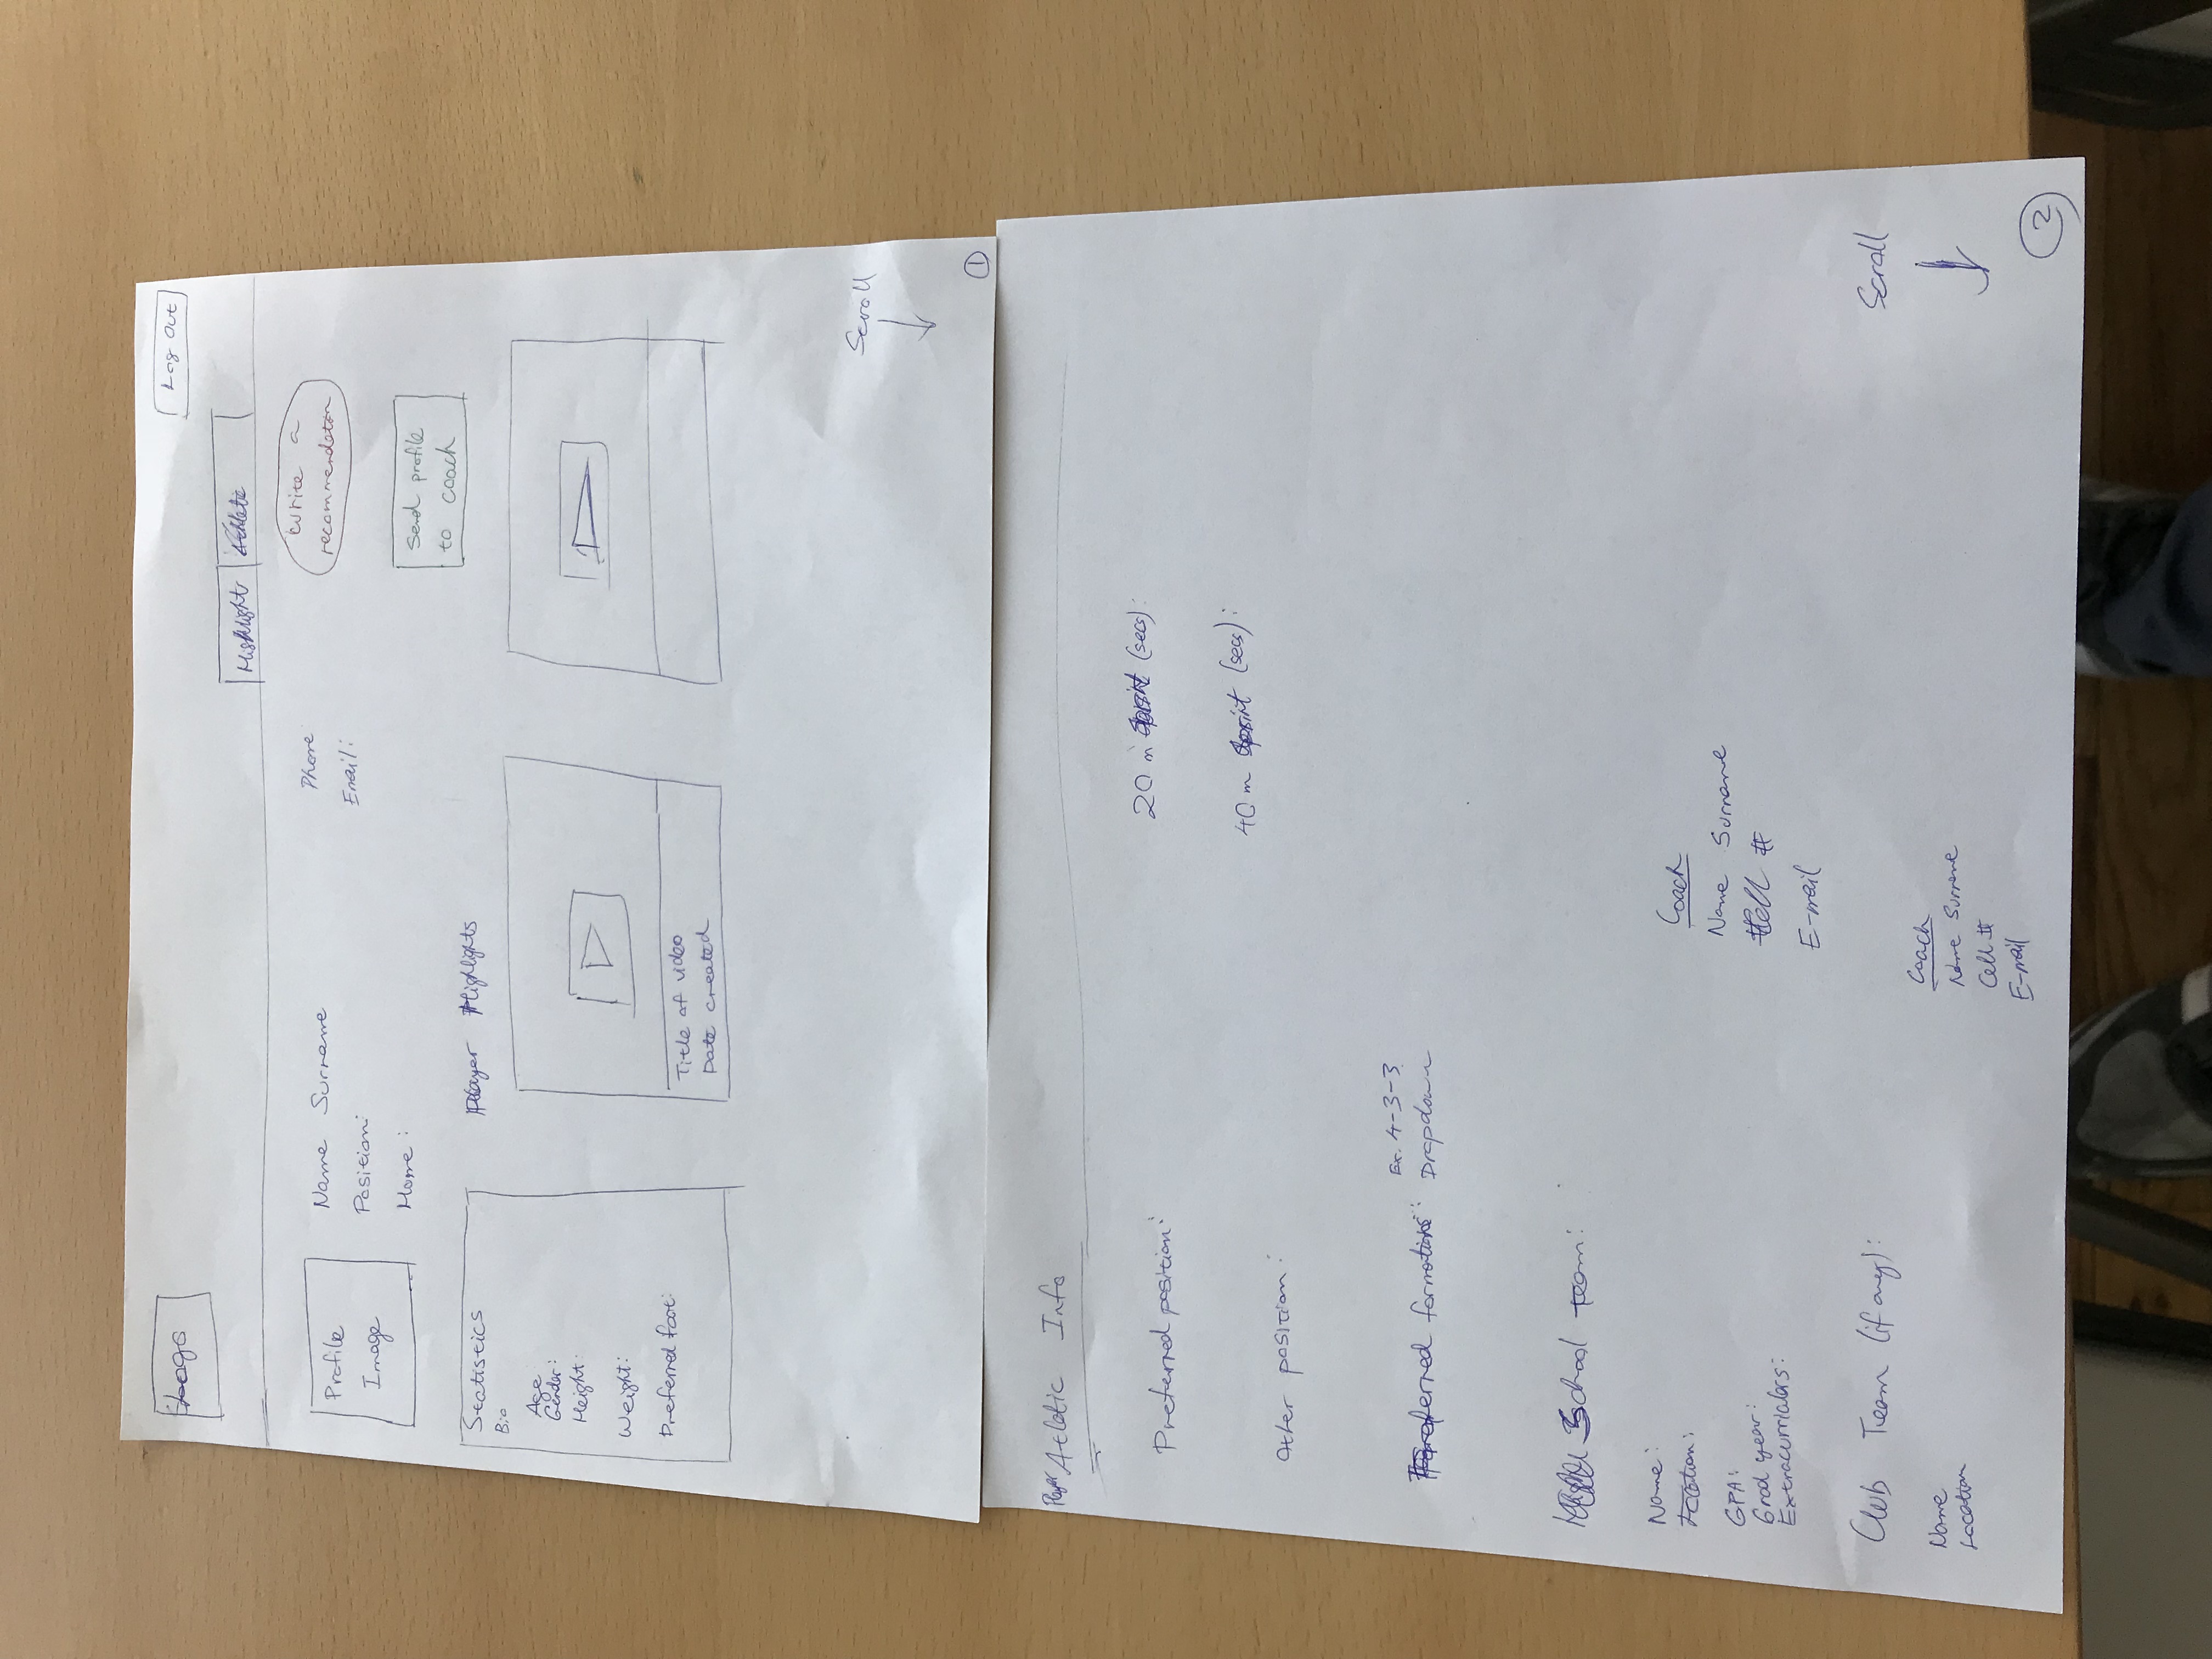 Logo
Log Out
Highlight Athletic
Profile
Image
Name Surname
Position:
Home :
Phone
Email :
write a
recommendaton
Send profile
to coach
Statistics
Bio
Age
Gender:
Height:
Weight:
Preferred foot:
Player Highlights
Title of video
Date created
Scroll
1
Player Atletic Info
Preferred position:
Other position:
20 m sprint (secs):
40 m sprint (secs):
Preferred formations: Ex. 4-3-3
Dropdown
High School team:
Name:
Location:
GPA:
Grad year:
Coach
Name Surname
Cell #
E-mail
Club Team (if any):
Name
Location
Coach
Name Surname
Cell #
E-mail
Scroll
2